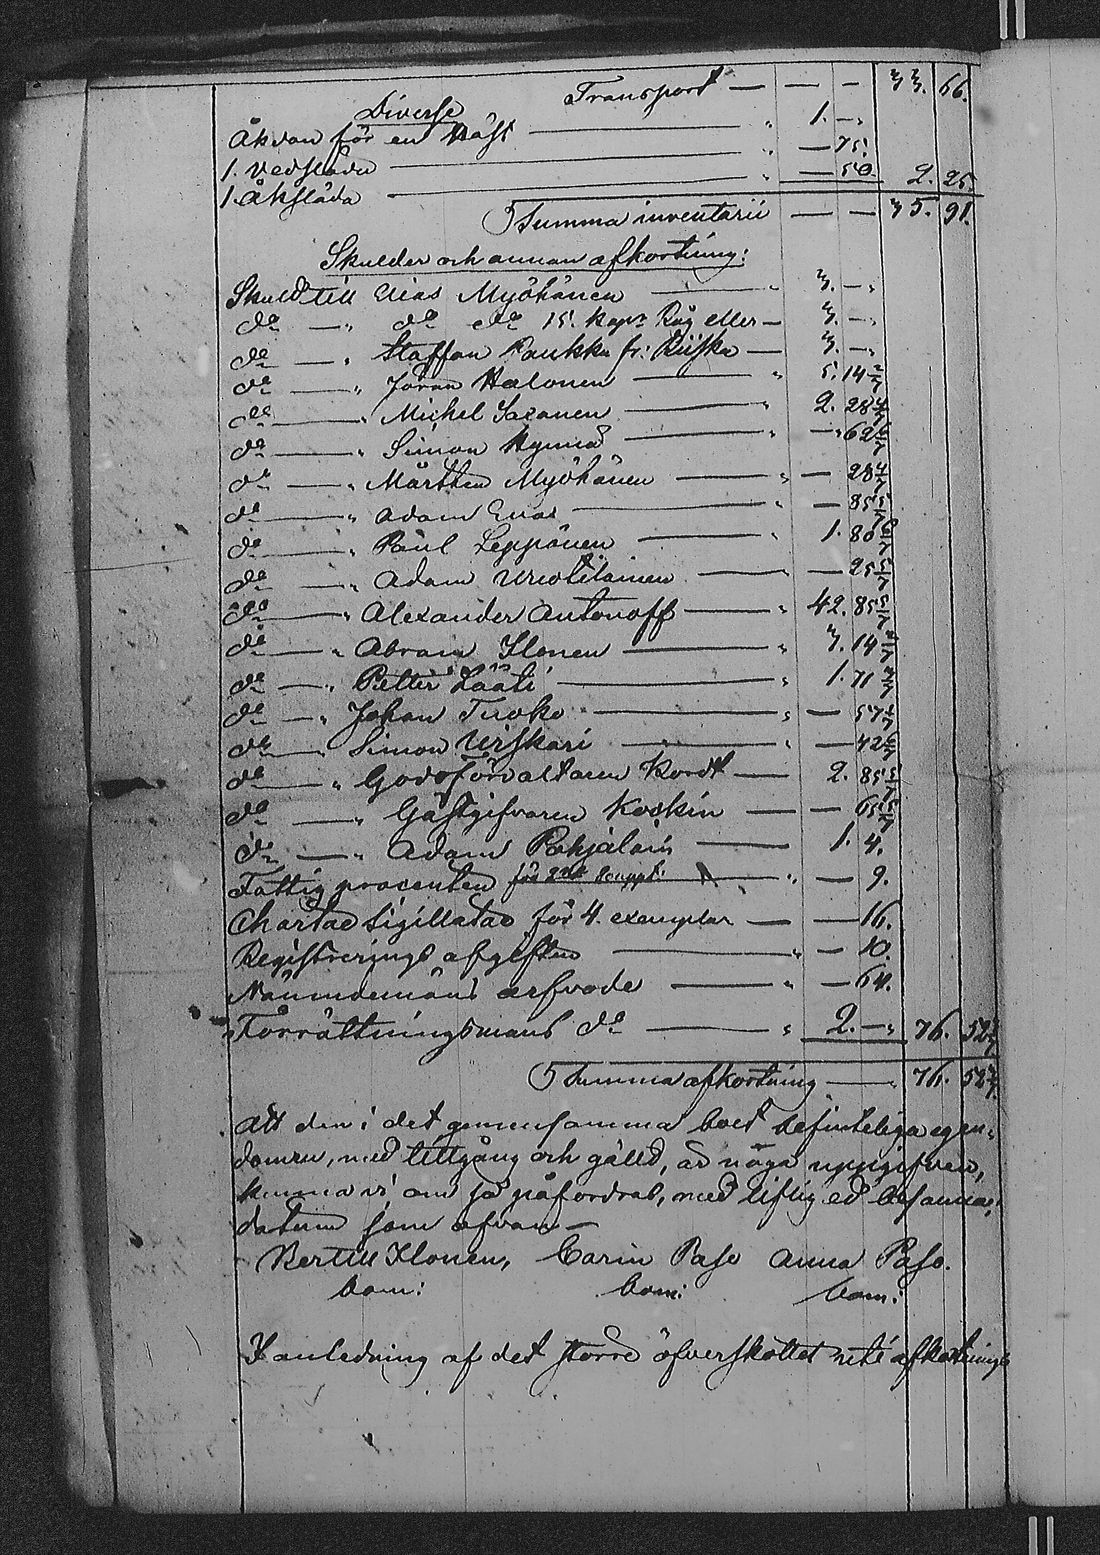 Transport — — — 33. 66.
Diverse
Åkdon för en häst — „ 1. — „
1. Vedsläda — „ — 75.
1. Åksläda — „ — 50. 2. 25.
Summa inventarii — — 35. 91.
Skulder och annan afkortning:
Skuld till Elias Myöhänen — „ 3. — „
do — „ do do 15. kapr Råg eller — 3. — „
do — „ Staffan Paukku fr: Riiska — 3. — „
do — „ Jöran Halonen — „ 5. 14 2/7
do — „ Michel Saxanen — „ 2. 28 4/7
do — „ Simon — „ — „ 62 6/7
do — „ Mårthen Myöhänen — „ — 28 4/7
do — „ Adam — „ — 85 5/7
do — „ Påul Leppänen — „ 1. 80
do — „ Adam — „ — 25 5/7
do — „ Alexander Antonoff — „ 42. 85 5/7
do — „ Abram Ilonen — „ 7. 14 2/7
do — „ Petter Lääti — „ 1. 71 3/7
do — „ Johan Turoko — „ — 57 1/7
do — „ Simon Urskari — „ — 42 6/7
do — „ Godsförvaltaren Kordt — 2. 85 5/7
do — „ Gästgifvaren Kockin — — 65 5/7
do — „ Adam Pohjalain — 1. 4.
Fattig procenten för — „ — 9.
Chartae Sigillatae för 4. exemplar — — 16.
Registrerings afgiften — „ — 10.
Nämndemans arfvode — „ — 64.
Förrättningsmans do — „ 2. — „ 76. 52 3/7
Summa afkortning — „ 76. 52 3/7.
Att den i det gemensamma boet befinteliga egen-
domen, med tillgång och gäld, är noga uppgifven,
kunna vi om så påfordras, med liflig ed besanna,
datum som ofvan —
Bertill Ilonen, Carin Paso Anna Paso.
bom: bom: bom:
I anledning af det större öfverskottet uti afkortnings